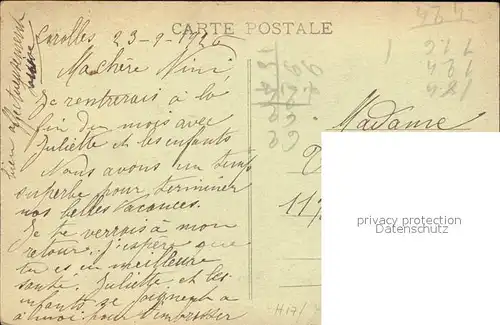 CARTE POSTALE
Carolles 23-9-1926
Ma chère Nini,
Je rentrerais à la
fin du mois avec
Juliette et les enfants
Nous avons un temps
superbe pour terminer
nos belles vacances.
Je te verrais à mon
retour. J'espère que
tu es en meilleure
santé. Juliette et les
enfants se joignent à
à moi pour t'embrasser
bien affectueusement
Madame
11
privacy protection
Service
H17/